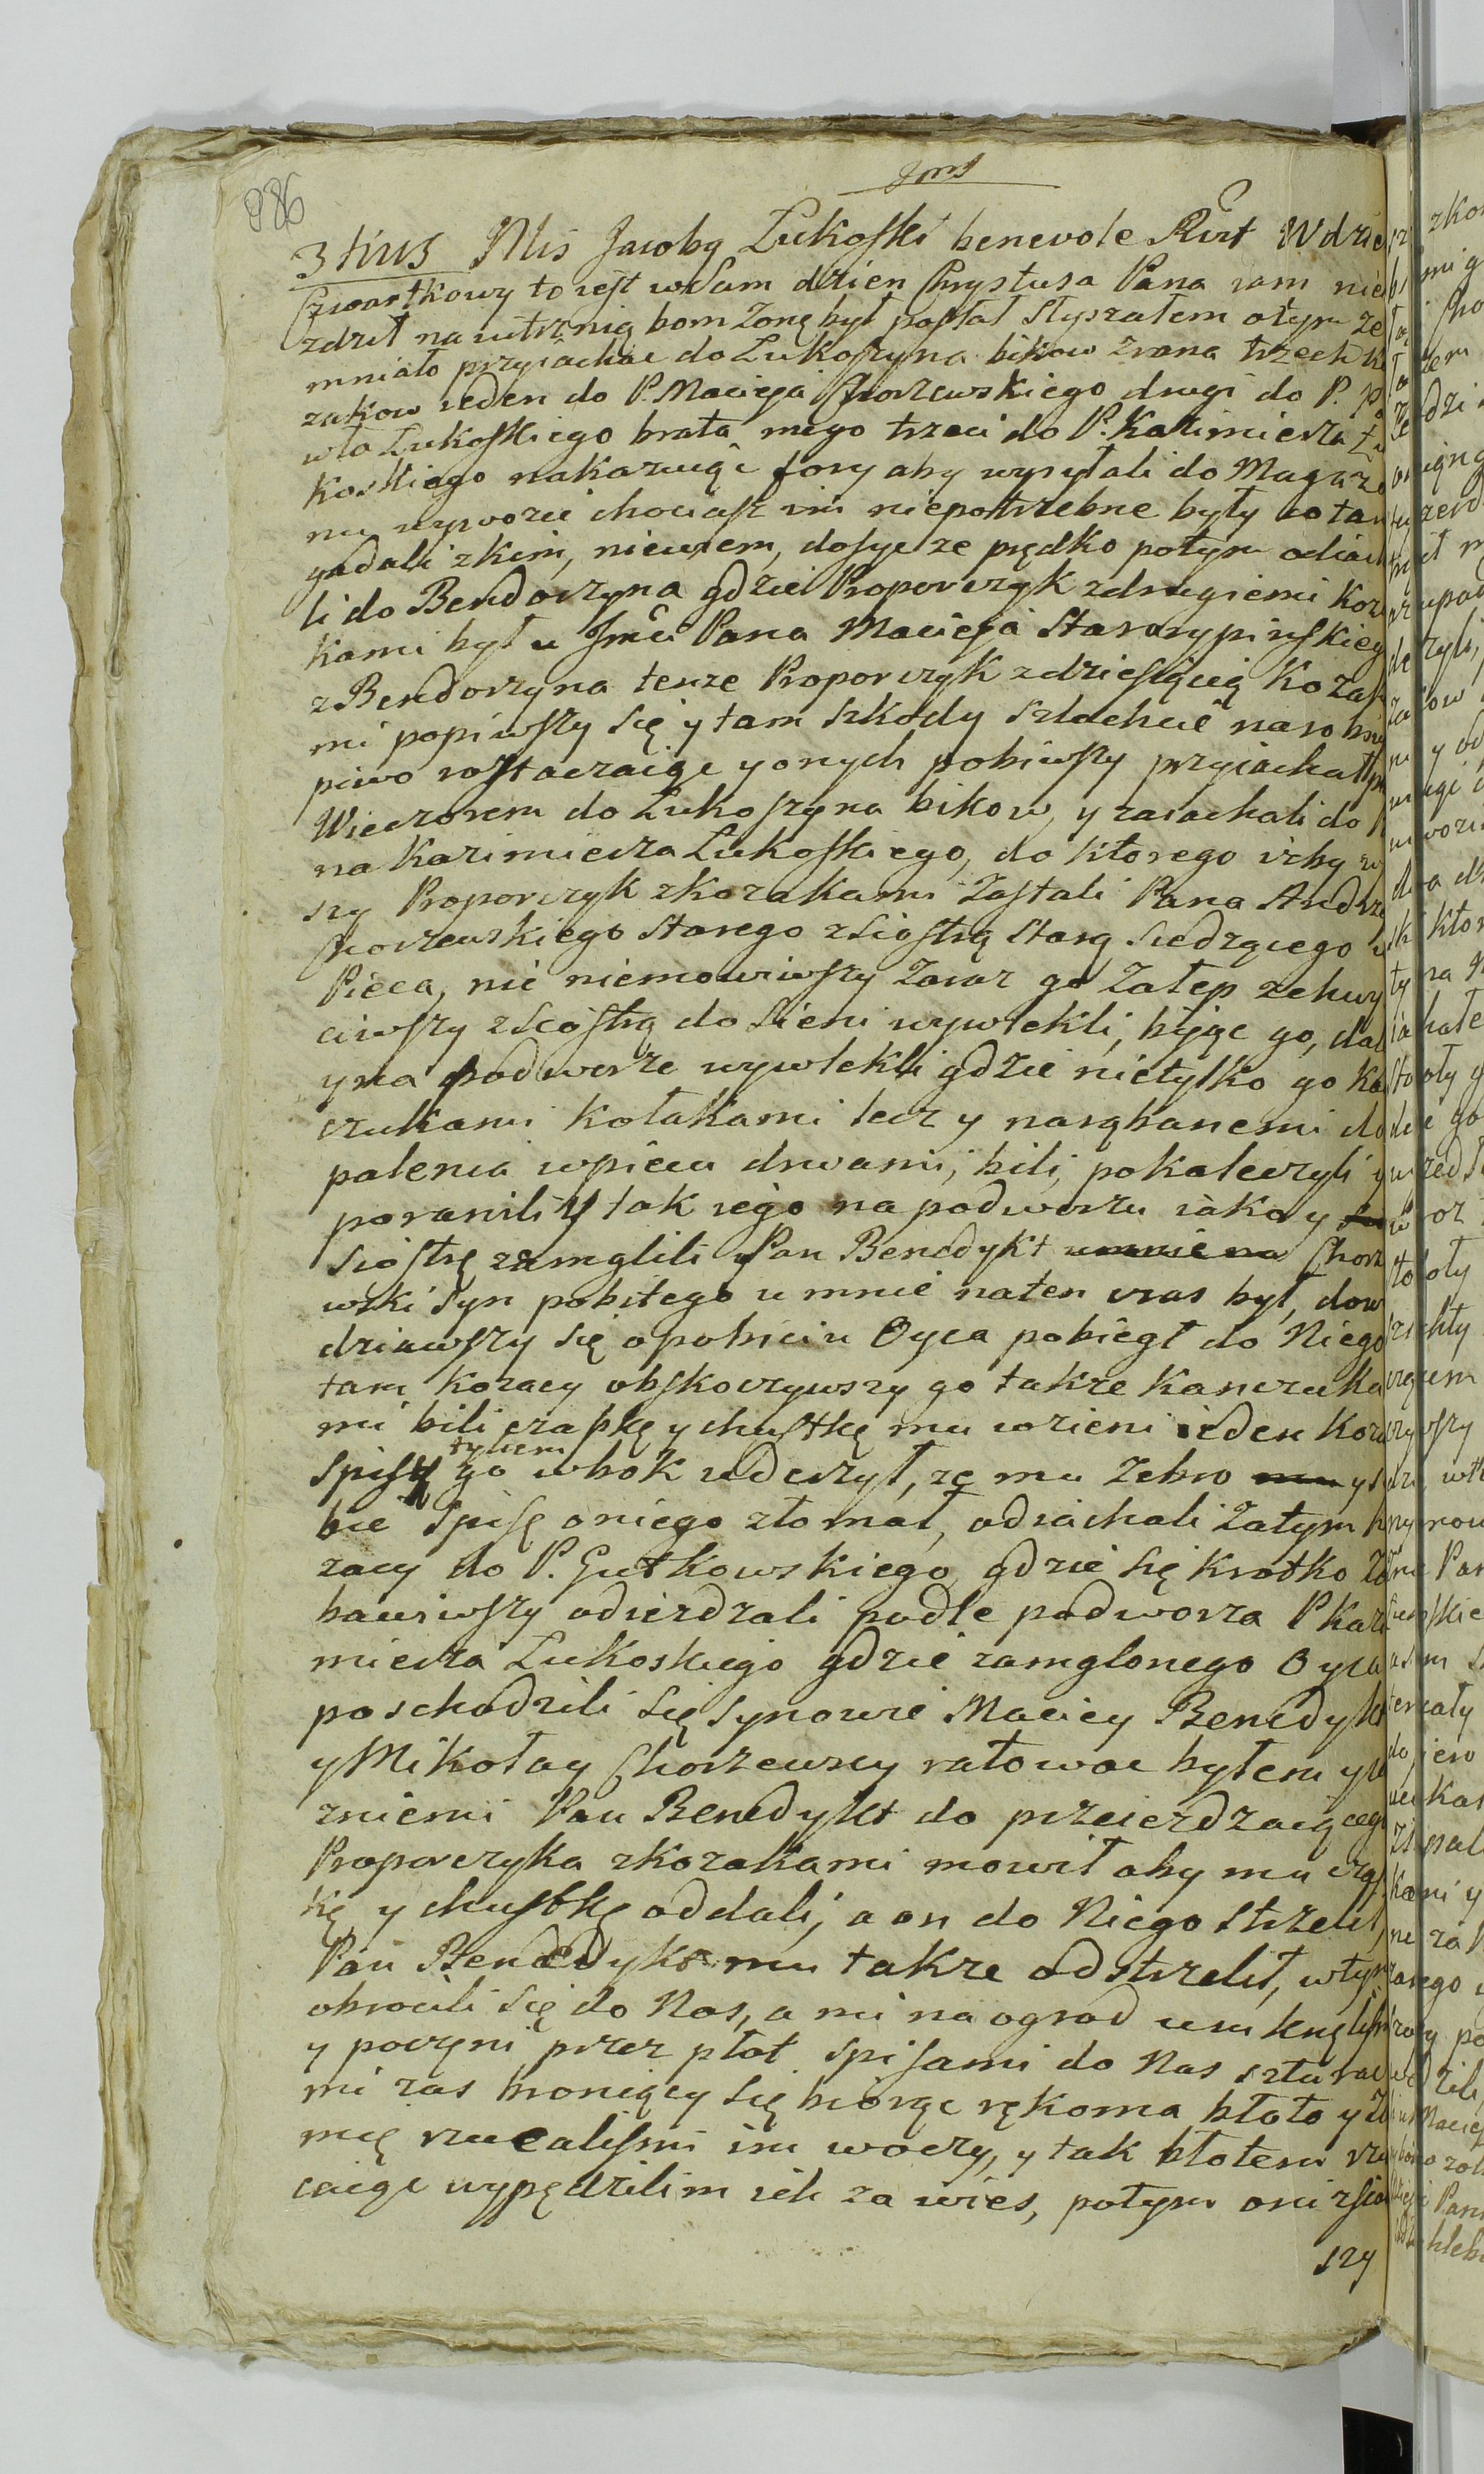 986
3tius Nlis Jacobq Lukoski benevole Rūit W dzie
Czwartkowy to iest w Sam dzien Chrystusa Pana sam nie
zdził na iutrznią bom Zonę był posłał Słyszałem otym ze
mniało przyiachac do Lukoszyna bikow zrana trzech ko
zakow ieden do P. Macieja Chorzewskiego drugi do P. Pa
wła Lukoskiego brata mego trzeci do P. Kazimierza Łu
koskiego nakazuiąc fory aby wysyłali do Magazy
nu wywozic chociasz im niepotrzebne były co tam
gadali zkim, niewiem, dosyc ze prędko potym odiach
li do Bendorzyna gdzie Proporczyk zdrugiemi Koza
kami był u Jmci Pana Macieja Starorypinskieg
z Bendorzyna tenze Proporczyk zdziesiącią Kozak
mi popiwszy się y tam szkody szlachcie narobiw
piwo roztaczaiąc y onych pobiwszy przyiachał
Wieczorem do Lukoszyna bikow, y zaiachali do P
na Kazimierza Lukoskiego, do ktorego izby w
szy Proporczyk zkozakami Zastali Pana Andrze
Chorzewskiego Starego z Siostrą Starą Siedzącego u
Pieca, nic niemowiwszy Zaraz go Załep zchwy
ciwszy z Siostrą do Sieni wywlekli, bijąc go, dal
y na podworze wywlekli gdzie nietylko go Ka
czukami Kołakami lecz y narąbanemi do
palenia wpiecu drwami, bili, pokaleczyli y
poranili Y tak iego na podworzu iako y
Siostrę zamglili Pan Benedykt Chorz
wski Syn pobitego u mnie naten czas był, dow
dziawszy się opobiciu Oyca pobiegł do Niego
tam Kozacy obskoczywszy go takze Kanczuka
mi bili czapkę y chustkę mu wzieni ieden Koza
Spisy tylcem go wbok uderzył, ze mu Zebro y s
bie Spisę oniego złomał, odiachali Zatym k
zacy do P. Gutkowskiego, gdzie Się Krotko Za
bawiwszy odiezdzali podle podworza P Kazi
mierza Lukoskiego gdzie zamglonego Oyca
poschodzili Się Synowie Maciey Benedykt
y Mikołay Chorzewscy ratowac byłem y ia
zniemi Pan Benedykt do przeiezdzaiącego
Proporczyka zkozakami mowił aby mu czap
kę y chustkę oddali, a on do Niego Strzelił,
Pan Benedykt mu takze odstrzelił, wtym
obrocili Się do Nas, a mi na ogrod umknęlism
y poczęni przez płot Spisami do Nas szturac
mi zas broniący Się biorąc rękoma błoto y Zi
mię rzucalismi im woczy, y tak błotem rzu
caiąc wypędzilim ich za wies, potym oni zsia
szy